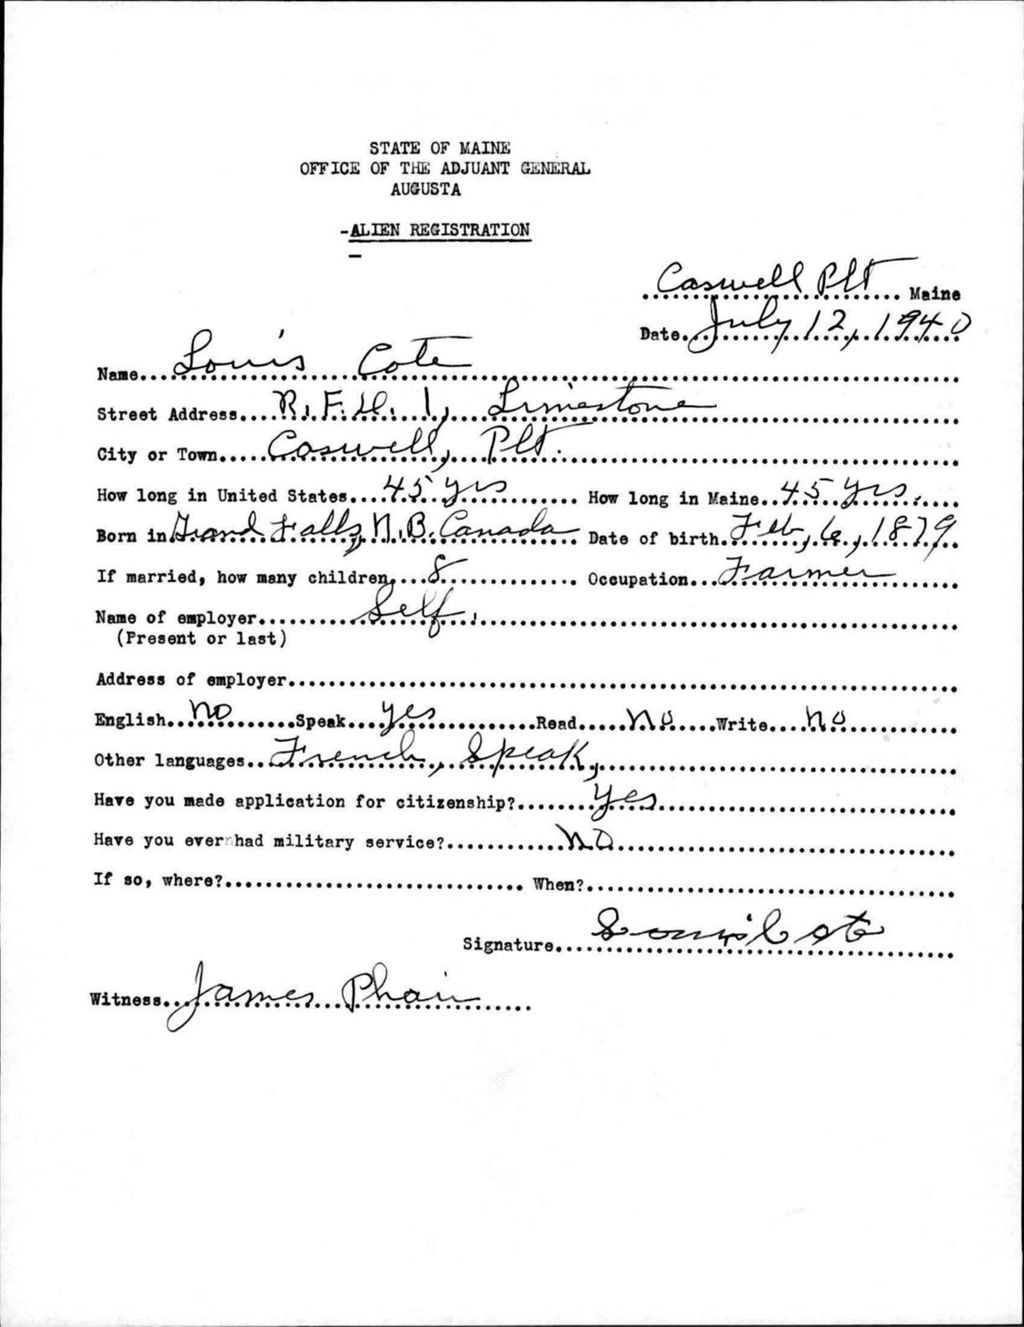 STATE OF MAINE
OFFICE OF THE ADJUANT GENERAL
AUGUSTA
-ALIEN REGISTRATION
Caswell Plt Maine
Date July 12, 1940
Name Louis Cote
Street Address R.F.D. 1, Limestone
City or Town Caswell, Plt.
How long in United States 45 yrs How long in Maine 45 yrs.
Born in Grand Falls, N.B. Canada Date of birth Feb, 6, 1879
If married, how many children, 8 Occupation Farmer
Name of employer Self.
(Present or last)
Address of employer
English No Speak yes Read No Write No
Other languages French, Speak,
Have you made application for citizenship? Yes
Have you ever had military service? No
If so, where? When?
Signature Louis Cote
Witness James Phair